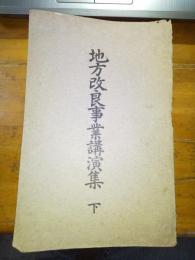 地方改良事業講演集 下